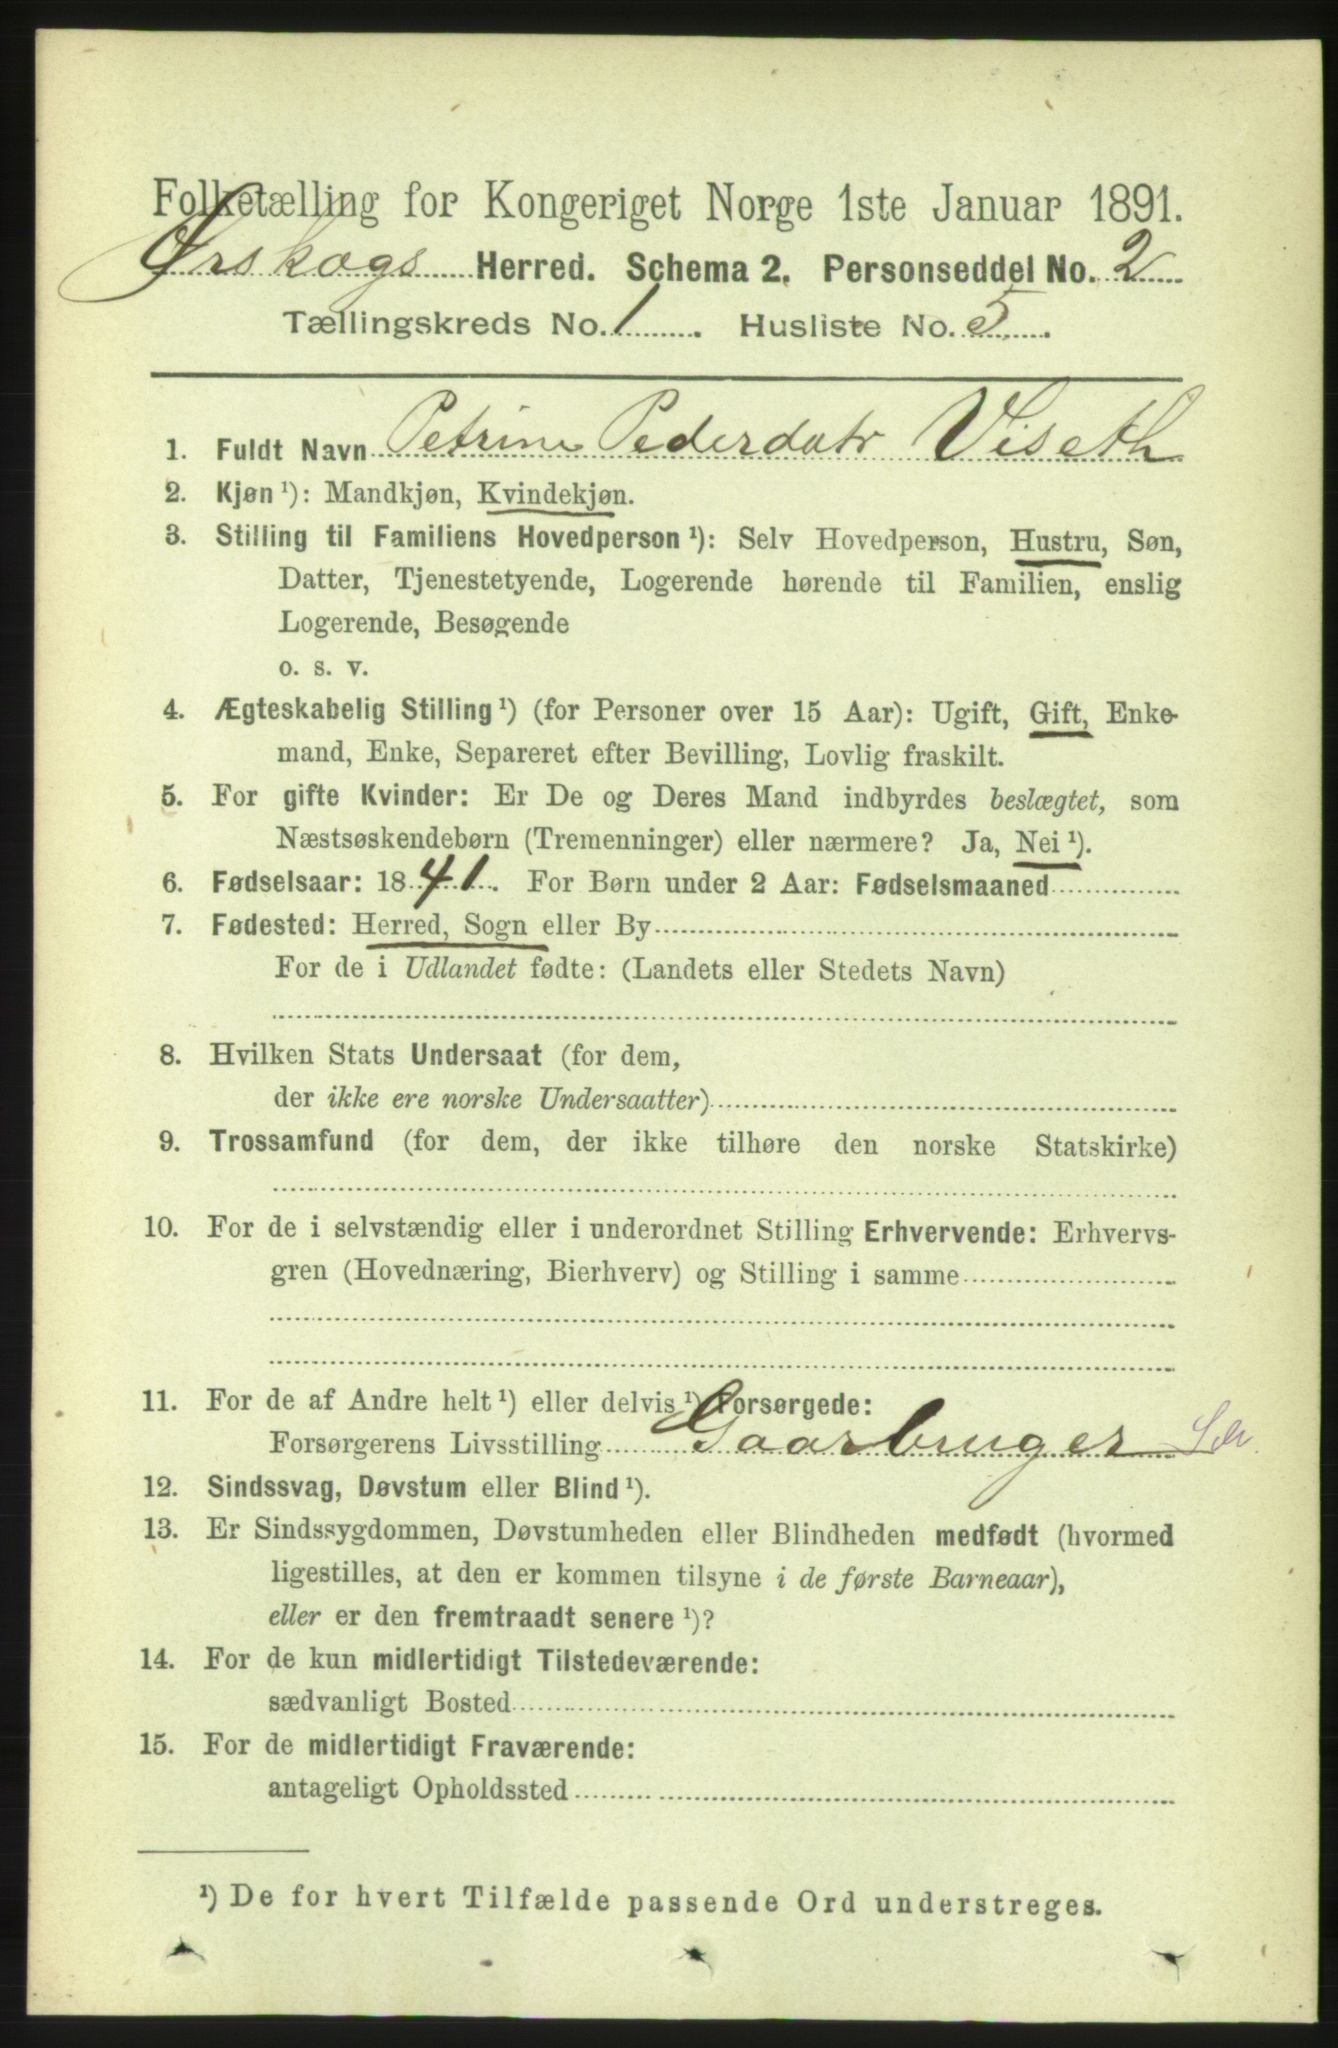 Folketælling for Kongeriget Norge 1ste Januar 1891.
Ørskogs Herred. Schema 2. Personseddel No. 2
Tællingskreds No. 1 . Husliste No. 5 .
1. Fuldt Navn Petrine Pedersdatr Viseth
2. Kjøn ¹): Mandkjøn, Kvindekjøn.
3. Stilling til Familiens Hovedperson ¹): Selv Hovedperson, Hustru, Søn,
Datter, Tjenestetyende, Logerende hørende til Familien, enslig
Logerende, Besøgende
o. s. v.
4. Ægteskabelig Stilling ¹) (for Personer over 15 Aar): Ugift, Gift, Enke-
mand, Enke, Separeret efter Bevilling, Lovlig fraskilt.
5. For gifte Kvinder: Er De og Deres Mand indbyrdes beslægtet, som
Næstsøskendebørn (Tremenninger) eller nærmere? Ja, Nei ¹).
6. Fødselsaar: 1841. For Børn under 2 Aar: Fødselsmaaned
7. Fødested: Herred, Sogn eller By
For de i Udlandet fødte: (Landets eller Stedets Navn)
8. Hvilken Stats Undersaat (for dem,
der ikke ere norske Undersaatter)
9. Trossamfund (for dem, der ikke tilhøre den norske Statskirke)
10. For de i selvstændig eller i underordnet Stilling Erhvervende: Erhvervs-
gren (Hovednæring, Bierhverv) og Stilling i samme
11. For de af Andre helt ¹) eller delvis ¹) Forsørgede:
Forsørgerens Livsstilling Gaarbruger
12. Sindssvag, Døvstum eller Blind ¹).
13. Er Sindssygdommen, Døvstumheden eller Blindheden medfødt (hvormed
ligestilles, at den er kommen tilsyne i de første Barneaar),
eller er den fremtraadt senere ¹)?
14. For de kun midlertidigt Tilstedeværende:
sædvanligt Bosted
15. For de midlertidigt Fraværende:
antageligt Opholdssted
¹) De for hvert Tilfælde passende Ord understreges.